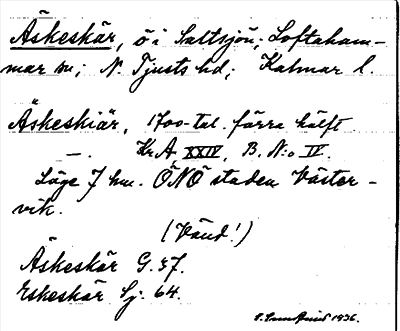 Äskeskär, ö i Saltsjön; Loftaham-
mar sn; N. Tjusts hd; Kalmar l.
Äskeskiär, 1700-tal. förra hälft
—. Kr. A. XXIV, B. N:o IV.
Läge 7 km. ÖNÖ staden Väster-
vik.
(Vänd!)
Äskeskär G. 57.
Eskeskär Sj. 64.
1936.